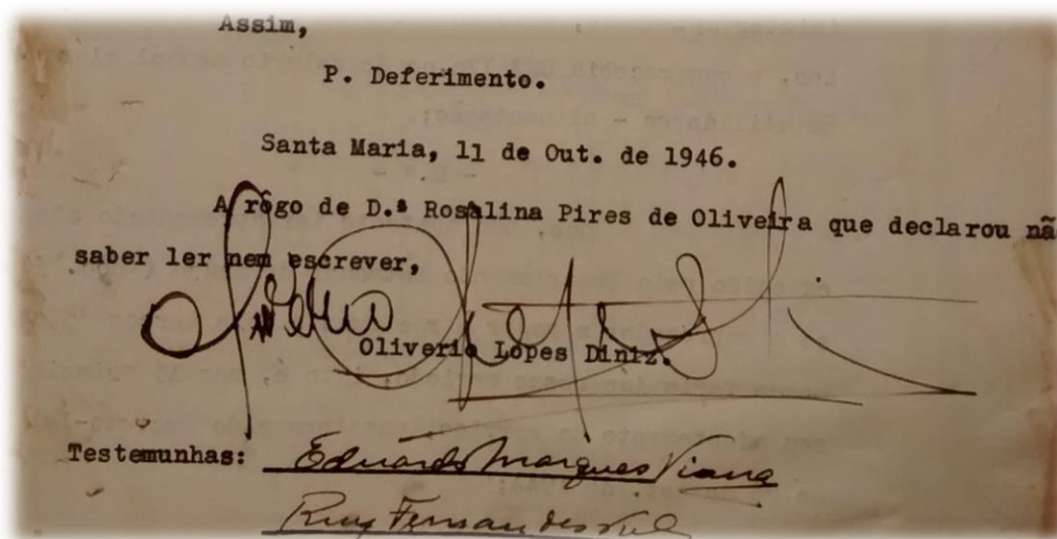 Assim,
P. Deferimento.
Santa Maria, 11 de Out. de 1946.
A rôgo de D.ª Rosalina Pires de Oliveira que declarou nã
saber ler nem escrever,
Oliverio Lopes Diniz.
Testemunhas: Eduardo Marques Viana
Ruy Fernandes